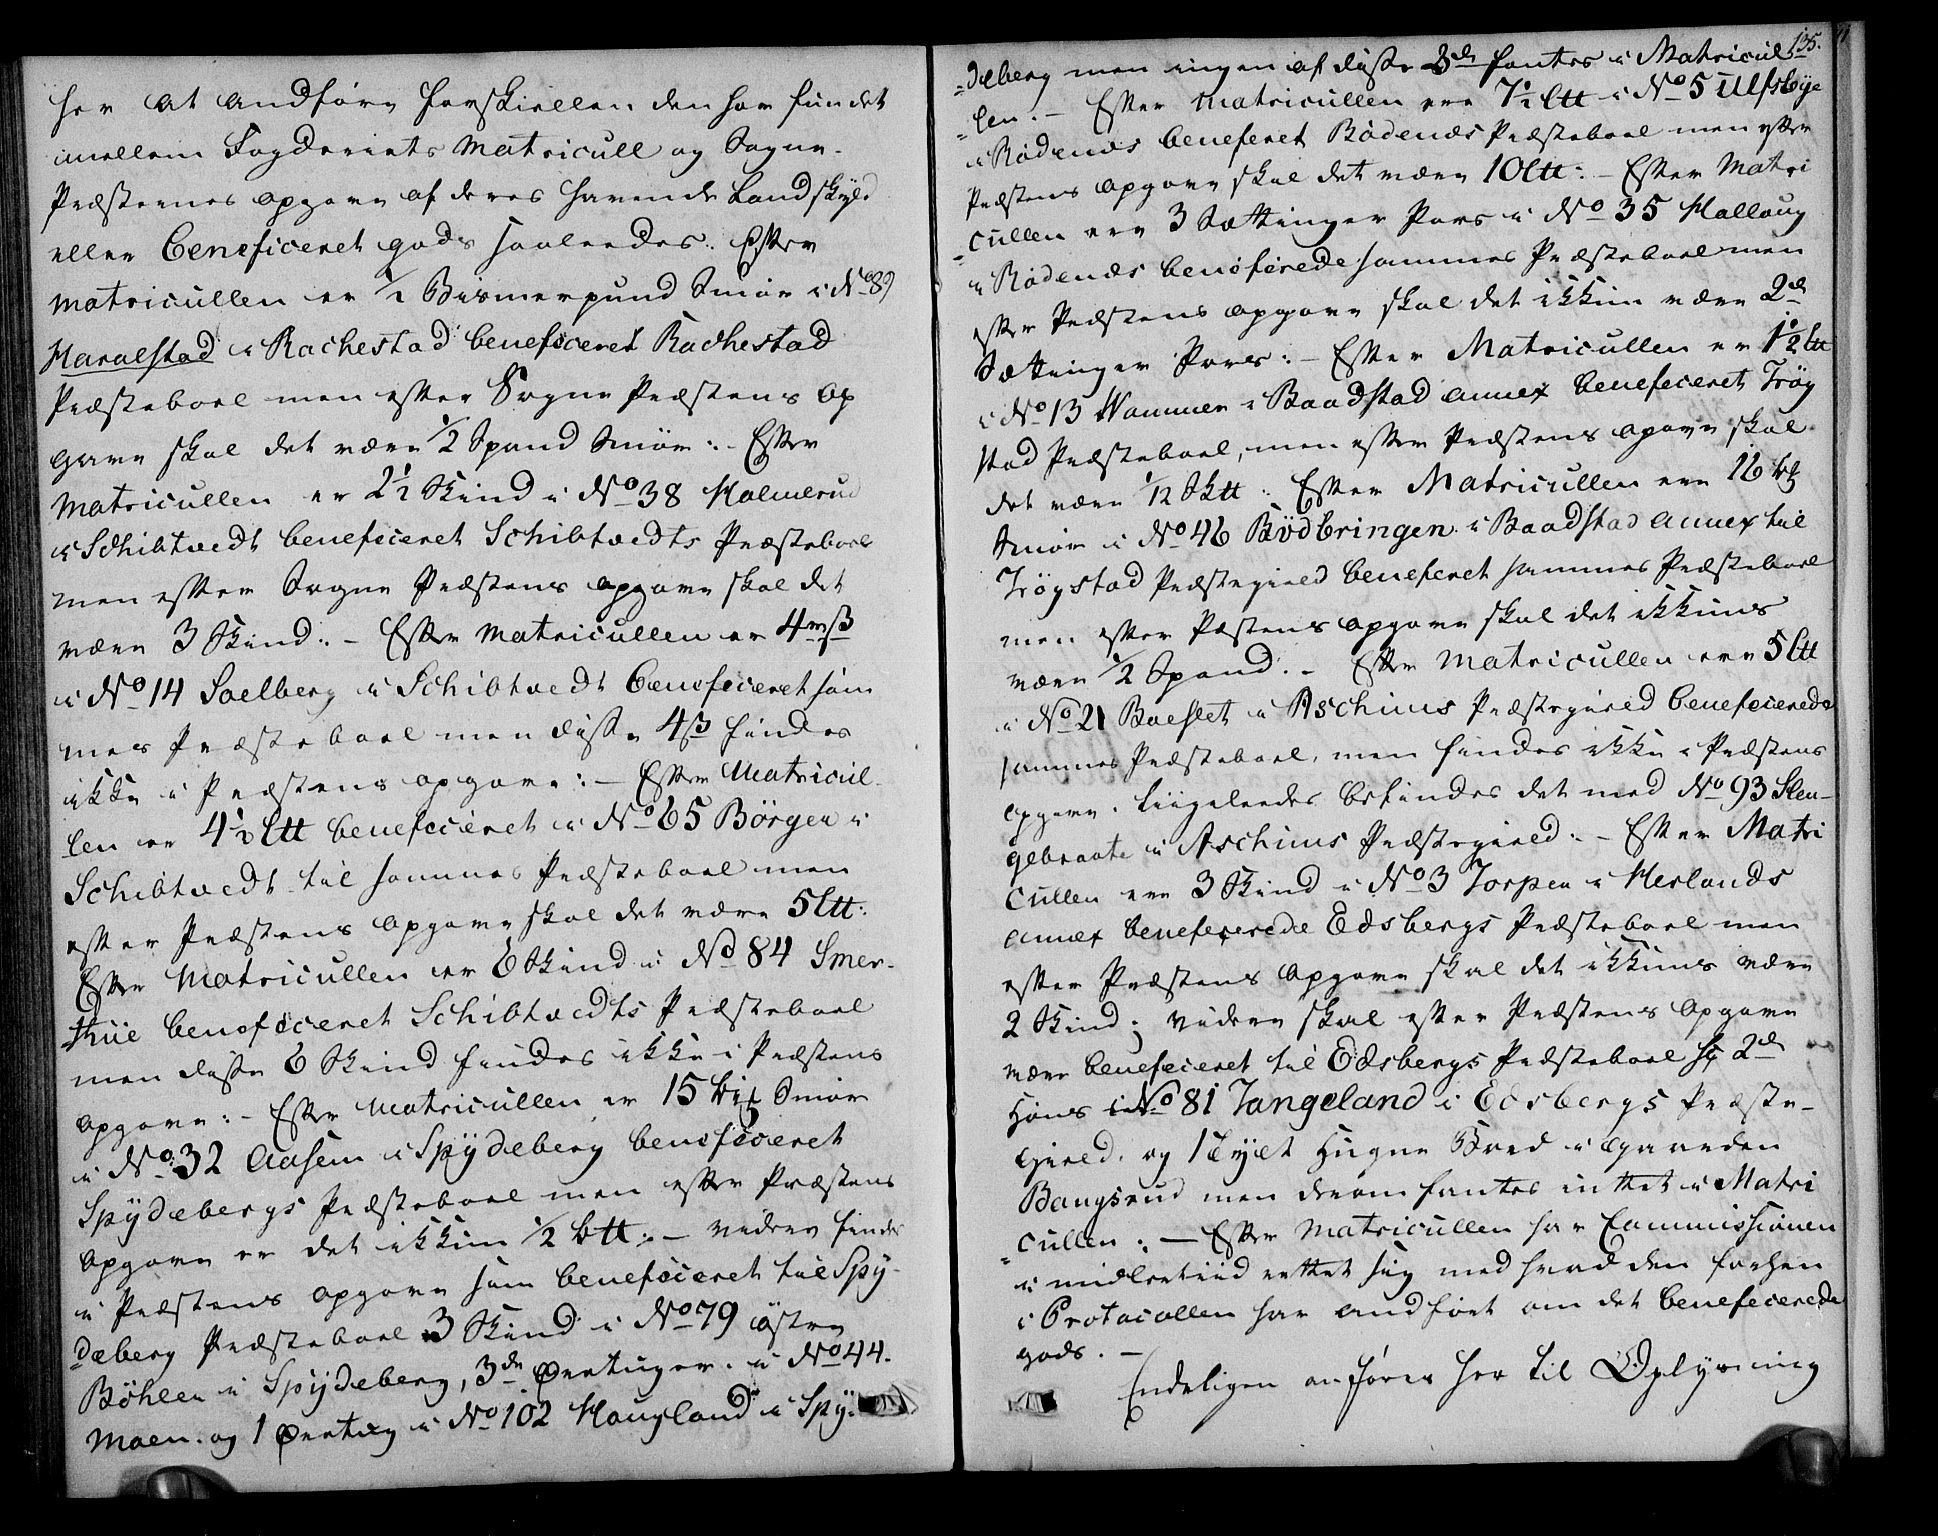 her at andføre forskiellen den har fundet
imellem Fogderiets Matricull og Sogne-
Præsternes opgave af deres havende Landskyld
eller beneficeret gods saaledes. Efter
matricullen er 1/2 Bismerpund Smør i No 89
Haraldstad i Rachestad beneficeret Rachestad
Præsteboel men efter Sogne Præstens Op
gave skal det være 1/2 Spand Smør :- Efter
Matricullen er 2 1/2 Skind i No 38 Holmerud
i Schibtvedt beneficeret Schibtvedts Præsteboel
men efter Sogne Præstens opgave skal det
være 3 Skind :- Efter Matricullen er 4 mß
i No 14 Soelberg i Schibtvedt beneficeret sam
mes Præsteboel men disse 4 ß findes
ikke i Præstens opgave :- Efter Matricul-
len er 4 1/2 Ltt beneficeret i No 65 Börgen i
Schibtvedt til sammes Præsteboel men
efter Præstens opgave skal det være 5 Ltt:
Efter Matricullen er 6 Skind i No 84 Smer-
thue beneficeret Schibtvedts Præsteboel
men disse 6 Skind findes ikke i Præstens
opgave :- Efter Matricullen er 15 Smør
i No 32 Aasem i Spÿdeberg beneficeret
Spÿdebergs Præsteboel men efter Præstens
Opgave er det ikkun 1/2 btt :- videre findes
i Præstens opgave som beneficeret til Spÿ-
deberg Præsteboel 3 Skind i No 79 östre
Böhlen i Spÿdeberg, 3de Øertuger i No 44.
Moen. og 1 Øertug i No 102 Hougland i Spÿ-
135.
=deberg men ingen af disse 3de fantes i Matricul-
=len. - Efter Matricullen ere 7 1/2 Ltt i No 5 Ulfsbye
i Rødenæs beneficeret Rødenæs Præsteboel men efter
Præstens opgave skal det være 10 Ltt :- Efter Matri
=cullen ere 3 Sættinger Pors i No 35 Hallaug
i Rødenæs beneficerede sammes Præsteboel men
efter Præstens opgave skal det ikkun være 2de
Sættinger Pors :- Efter Matricullen er 1 1/2 Ltt
i No 13 Hammer i Baadstad annex beneficeret Trøg
stad Præsteboel, men efter Præstens opgave skal
det være 1/2 Sktt : Efter Matricullen ere 16
Smør i No 46 Bödbringen i Baadstad annex til
Trögstad Præstegield beneficeret sammes Præsteboel
men efter Præstens opgave skal det ikkuns
være 1/2 Spand. - Efter Matricullen ere 5 Ltt
i No 21 Boeslet i Aschims Præstegield beneficerede
sammes Præsteboel, men findes ikke i Præstens
opgave. Liigeleedes befindes det med No 93 Slen-
gebraate i Aschims Præstegield :- Efter Matri
cullen ere 3 Skind i No 3 Torpen i Herlands
annex beneficerede Edsbergs Præsteboel men
efter Præstens Opgave skal det ikkuns være
2 Skind; videre skal efter Præstens Opgave
være beneficeret til Edsbergs Præsteboel 2de
Høns i No 81 Tangeland i Edsbergs Præste-
gield. og 1 Leÿet Hugne Bred i Gaarden
Bangsrud men derom fantes intet i Matri
=cullen :- Efter Matricullen har Commissionen
i midlertiid rettet sig med hvad den forhen
i Protocollen har andført om det beneficerede
gods. -
Endeligen anføres her til Oplysning